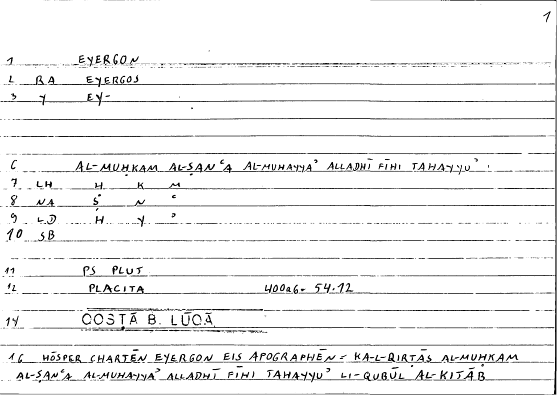 1
1 EYERGON
2 RA EYERGOS
3 Y EY-
6 AL-MUḤKAM AL-ṢANʿA AL-MUHAYYAʾ ALLADHĪ FĪHI TAHAYYUʾ
7 LH Ḥ K M
8 NA Ṣ N ʿ
9 LD H Y ʾ
10 SB
11 PS PLUT
12 PLACITA 400a6- 54.12
14 QOSṬĀ B. LŪQĀ
16 HŌSPER CHARTĒN EYERGON EIS APOGRAPHĒN = KA-L-QIRṬĀS AL-MUḤKAM
AL-ṢANʿA AL-MUHAYYAʾ ALLADHĪ FĪHI TAHAYYUʾ LI-QUBŪL AL-KITĀB